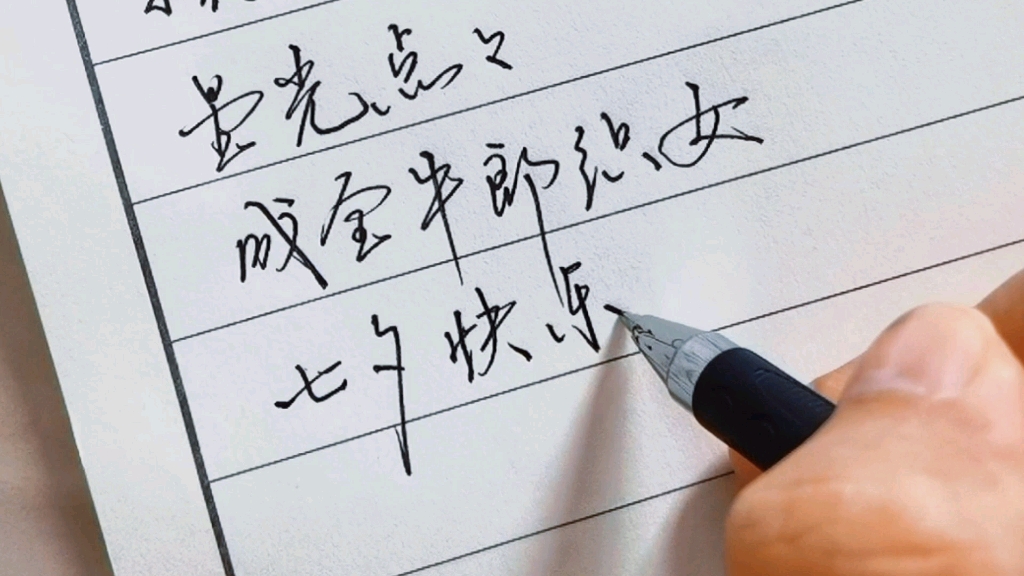 星光点々
成全牛郎织女
七夕快乐